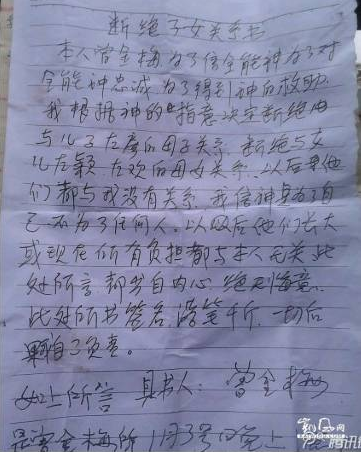 断绝子女关系书
本人曾金梅为了信全能神为了对
全能神忠诚为了得到神的救助
我根据神的"指意决定断绝由
与儿子左彦的母子关系.断绝与女
儿左颖.左欢的母女关系.以后里他
们都与我没有关系.我信神是为了自
己不为了任何人.以及后他们长大
或现在所有负担都与本人无关.此
处所言都出自内心绝不悔意.
此处所书签名.落笔千斤.一切后
果自己负责。
如上所言 具书人: 曾金梅
是曾金梅所1月3号口晚上
腾讯